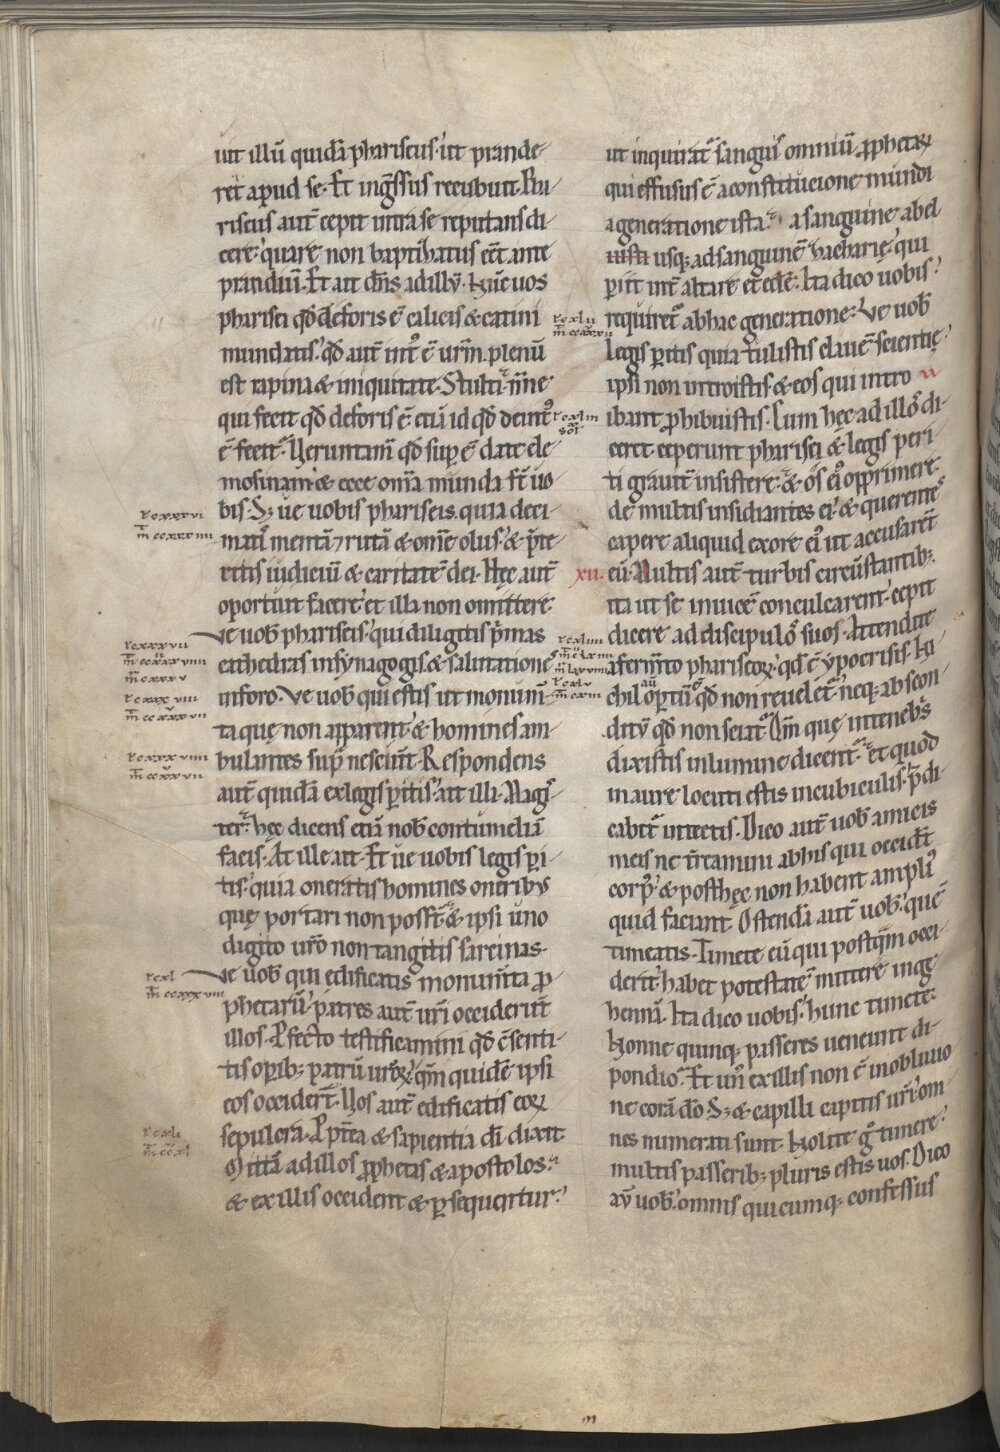 uit illū quidā phariseus. ut prande
ret apud se. Et ingr̄ssus recubuit. Pha
riseus aut̄ cepit intra se reputans di
cere. quare non baptizatus eēt ante
prandiū. Et ait dn̄s ad illū. Nūc uos
pharisei qđ deforis ē calicis & catini
mundatis. qđ aut̄ int᷒ ē ur̄m. plenū
est rapina & iniquitate. Stulti. nn̄e
qui fecit qđ deforis ē. etiā id qđ deint᷒
ē fecit. Ueruntam̄ qđ supe ē date ele
mosinam. & ecce om̄a munda st̄ uo
bis. Sꝫ ue uobis phariseis. quia deci
matis mentā ⁊ rutā & om̄e olus. & p̄te
ritis iudiciū & caritatē dei. Hęc aut̄
oportuit facere. et illa non omittere.
Ve uob̄ phariseis. qui diligitis p̄mas
cathedras in sẏnagogis. & salutationes
in foro. Ve uob̄ qui estis ut monum̄
ta quę non apparent. & homines am
bulantes sup̄ nesciunt. Respondens
aut̄ quidā ex legis ꝑitis. ait illi. Magis
ter. hęc dicens etiā nob̄ contumeliā
facis. At ille ait. Et ue uobis legis ꝑi
tis. quia oneratis homines oneribus
quę portari non posst̄. & ipsi uno
digito ur̄o non tangitis sarcinas.
Ve uob̄ qui edificatis monum̄ta ꝓ
phetarū. patres aut̄ ur̄i occiderunt
illos. Ꝓfecto testificamini qđ c̄senti
tis oꝑibꝫ patrū ur̄oꝝ. qm̄ quidē ipsi
eos occider̄t. Uos aut̄ edificatis eoꝝ
sepulcra. Ꝓpt̄ea & sapientia dī dixit.
Mittā ad illos ꝓphetas & apostolos.
& ex illis occident & ꝑsequentur.
ut inquirat᷒ sanguis omniū ꝓphetaꝝ
qui effusus ē a constitucione mundi
a generatione ista. a sanguine abel
iusti usqꝫ ad sanguinē zacharię. qui
periit int̄ altare et edē. Ita dico uobis.
requiret᷒ ab hac generatione. Ve uob̄
legis ꝑitis quia tulistis clauē scientię.
ipsi non introistis & eos qui intro
ibant ꝓhibuistis. Cum hęc ad illos di
ceret. ceperunt pharisei & legis peri
ti grauit̄ insistere. & os ei᷒ opprimere
de multis insidiantes ei. & querentes
capere aliquid ex ore ei᷒ ut accusarent
xii. eū. Multis aut̄ turbis circūstantibꝫ.
ita ut se inuicē conculcarent. cepit
dicere ad discipulos suos. Attendite
a ferm̄to phariseoꝝ. qđ ē ẏpocrisis. Ni
chil aū opertū ē qđ non reuelet᷒. neqꝫ abscon
ditū qđ non sciat᷒. Qm̄ quę in tenebris
dixistis in lumine dicent᷒. et quod
in aure locuti estis in cubiculis. p̄di
cabit᷒ in tectis. Dico aut̄ uob̄ amicis
meis ne t̄reamini ab his qui occidt̄
corp᷒. & post hęc non habent ampli᷒
quid faciant. Ostendā aut̄ uob̄. quē
timeatis. Timete eū qui postqm̄ occi
derit. habet potestatē mittere in ge
hennā. Ita dico uobis. hunc timete.
Nonne quinqꝫ passeres ueneunt di
pondio. Et un᷒ ex illis non ē in obliuio
ne corā dō. Sꝫ & capilli capitis ur̄i om
nes numerati sunt. Nolite g̊ timere.
multis passeribꝫ pluris estis uos. Dico
aū uob̄. omnis quicumqꝫ confessus